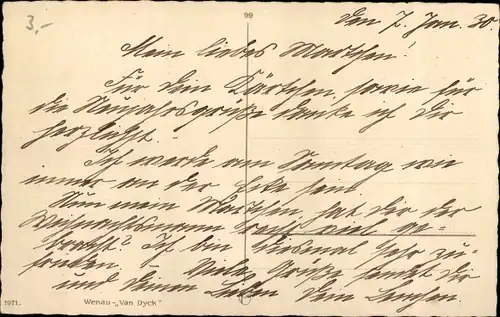 3,-
99
den 7. Jan. 30.
Mein liebes Martchen!
Für Dein Kärtchen, sowie für
die Neujahrsgrüße danke ich Dir
herzlichst.
Ich werde am Sonntag wie
immer an der Ecke sein.
Nun mein Martchen, hat Dir der
Weihnachtsmann recht viel ge-
bracht? Ich bin diesmal sehr zu-
frieden. Viele Grüße sendet Dir
und Deinen Lieben Dein
1971.
Wenau-„Van Dyck"